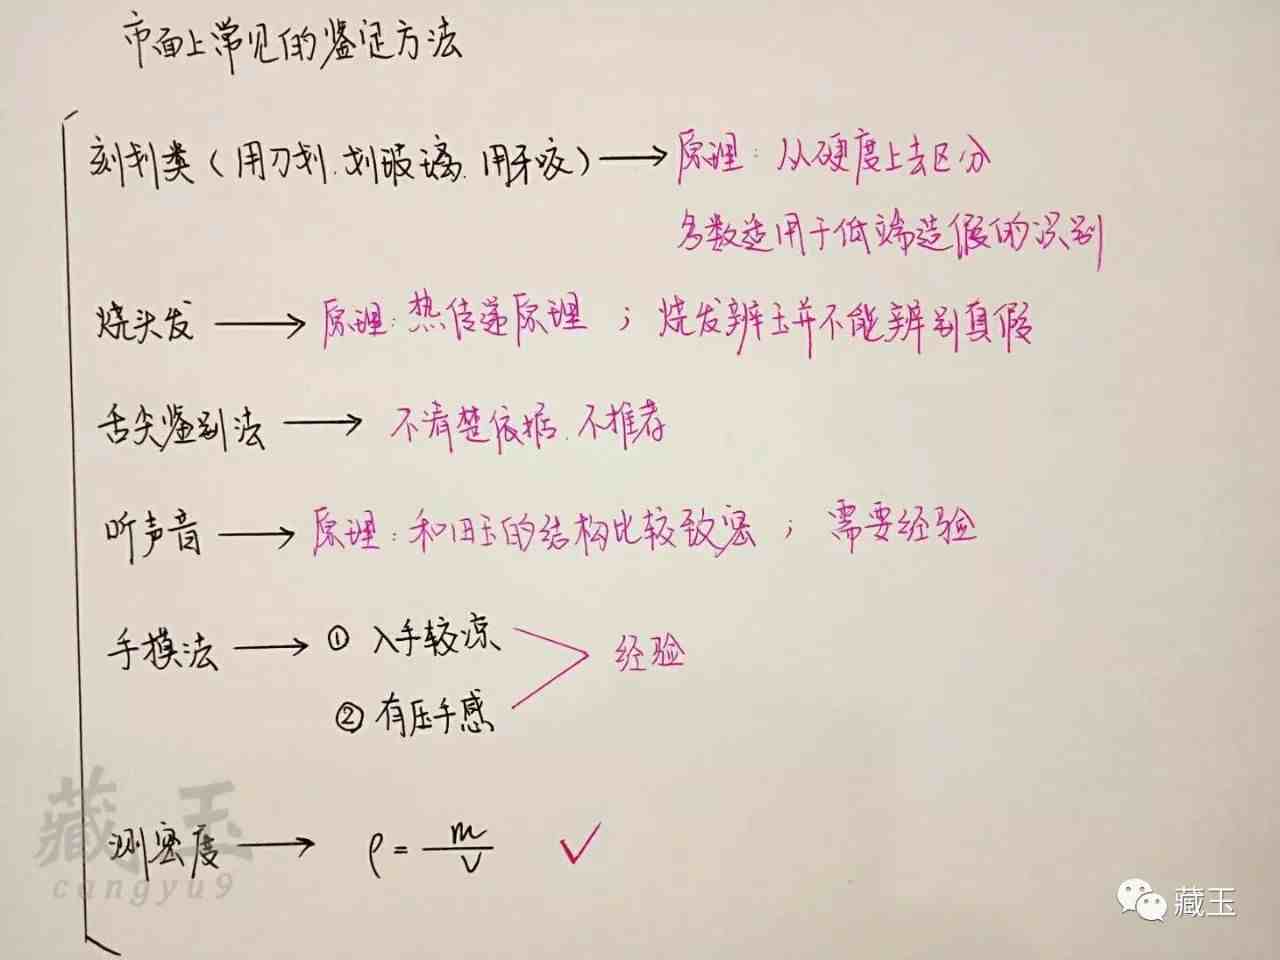 市面上常见的鉴定方法
刻划类（用刀划.划玻璃.用牙咬）→ 原理：从硬度上去区分
多数适用于低端造假的识别
烧头发 → 原理：热传递原理；烧发辨玉并不能辨别真假
舌尖鉴别法 → 不清楚依据.不推荐
听声音 → 原理：和田玉的结构比较致密；需要经验
手摸法 → ① 入手较凉
② 有压手感
经验
测密度 → ρ = m/V ✓
藏玉
cangyu9
藏玉